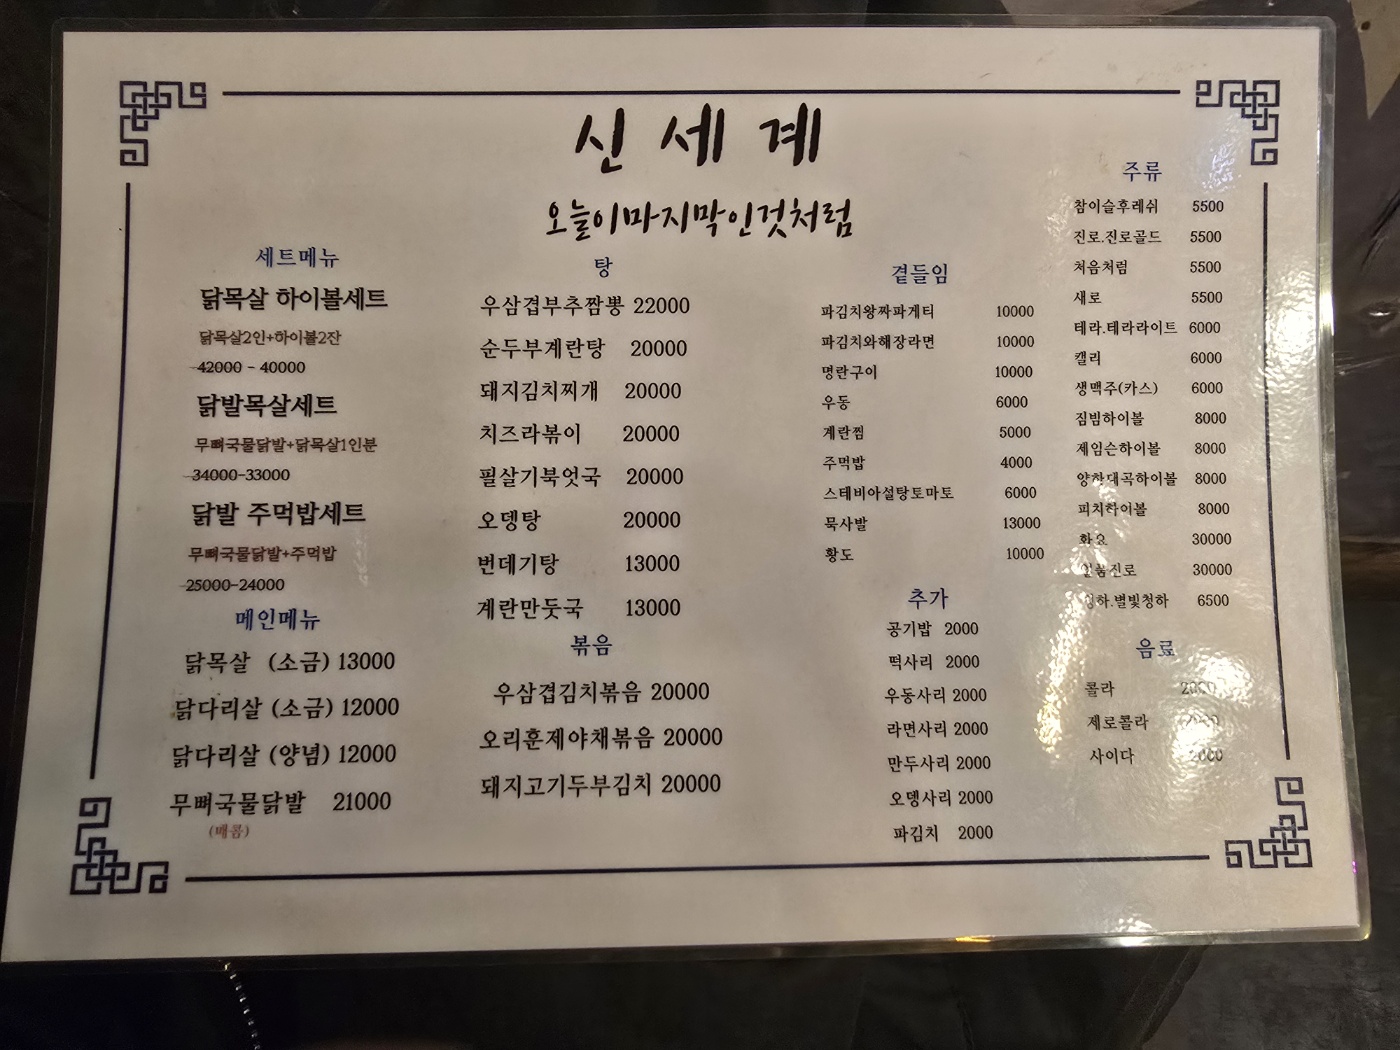 신세계
오늘이마지막인것처럼
세트메뉴
닭목살 하이볼세트
닭목살2인+하이볼2잔
42000 - 40000
닭발목살세트
무뼈국물닭발+닭목살1인분
34000-33000
닭발 주먹밥세트
무뼈국물닭발+주먹밥
25000-24000
메인메뉴
닭목살 (소금) 13000
닭다리살 (소금) 12000
닭다리살 (양념) 12000
무뼈국물닭발 21000
(매콤)
탕
우삼겹부추짬뽕 22000
순두부계란탕 20000
돼지김치찌개 20000
치즈라볶이 20000
필살기북엇국 20000
오뎅탕 20000
번데기탕 13000
계란만둣국 13000
볶음
우삼겹김치볶음 20000
오리훈제야채볶음 20000
돼지고기두부김치 20000
곁들임
파김치왕짜파게티 10000
파김치와해장라면 10000
명란구이 10000
우동 6000
계란찜 5000
주먹밥 4000
스테비아설탕토마토 6000
묵사발 13000
황도 10000
추가
공기밥 2000
떡사리 2000
우동사리 2000
라면사리 2000
만두사리 2000
오뎅사리 2000
파김치 2000
주류
참이슬후레쉬 5500
진로.진로골드 5500
처음처럼 5500
새로 5500
테라.테라라이트 6000
캘리 6000
생맥주(카스) 6000
짐빔하이볼 8000
제임슨하이볼 8000
양하대곡하이볼 8000
피치하이볼 8000
화요 30000
일품진로 30000
청하.별빛청하 6500
음료
콜라 2000
제로콜라 2000
사이다 2000